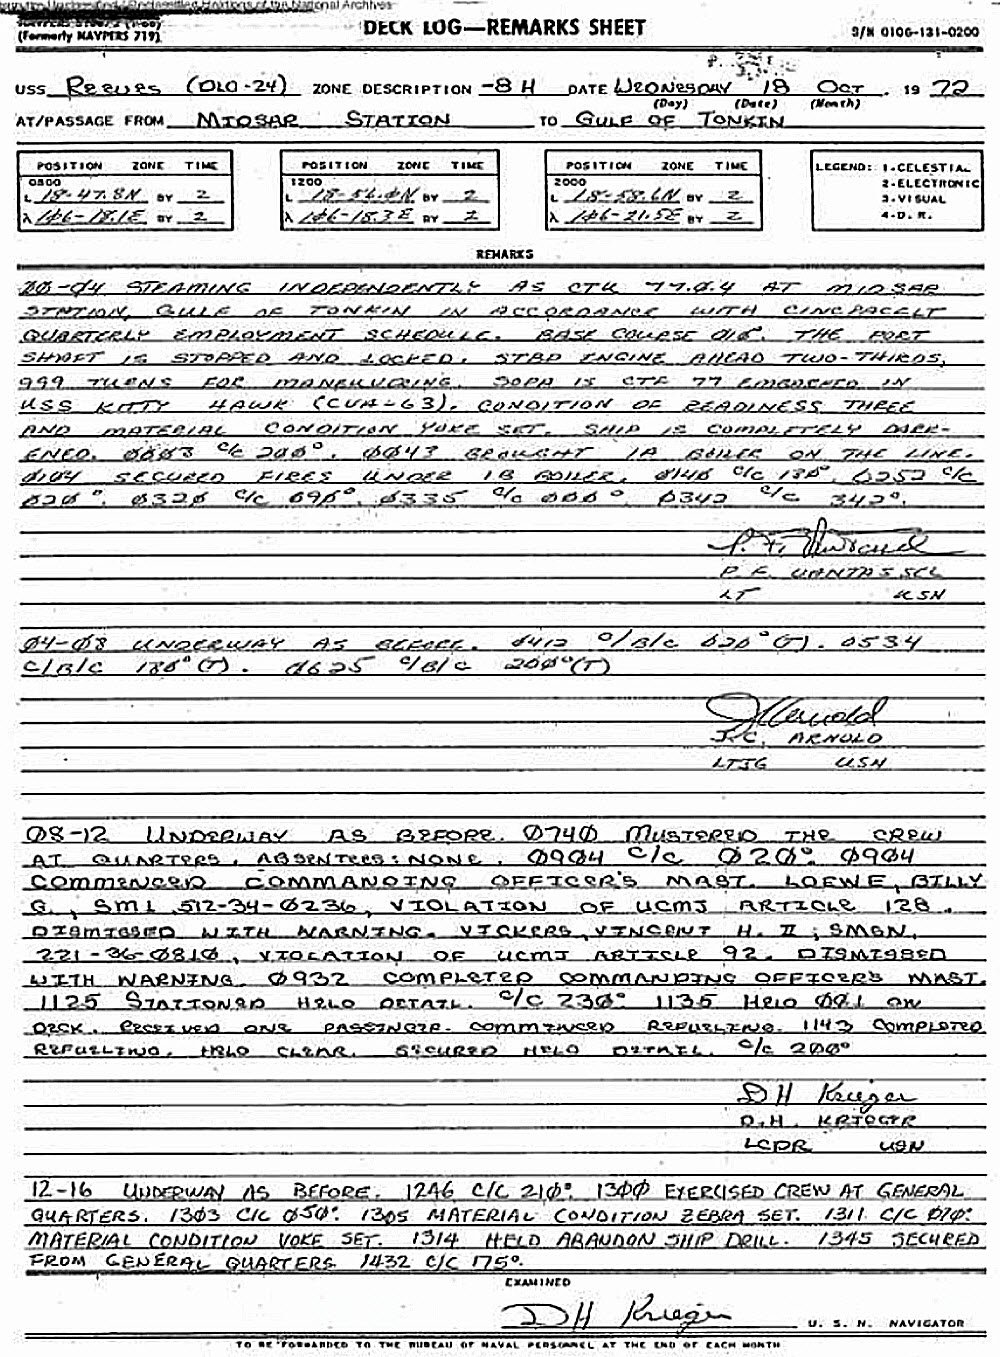 Declassified Holdings of the National Archives
(Formerly NAVPERS 719)
DECK LOG—REMARKS SHEET
S/N 0106-131-0200
USS REEVES (DLG-24) ZONE DESCRIPTION -8 H DATE WEDNESDAY 18 OCT . 19 72
(Day) (Date) (Month)
AT/PASSAGE FROM MIDSAR STATION TO GULF OF TONKIN
POSITION ZONE TIME
0800
L 18-47.8N BY 2
λ 1Ø6-18.1E BY 2
POSITION ZONE TIME
1200
L 18-56.ØN BY 2
λ 1Ø6-18.3E BY 2
POSITION ZONE TIME
2000
L 18-58.6N BY 2
λ 1Ø6-21.5E BY 2
LEGEND: 1-CELESTIAL
2-ELECTRONIC
3-VISUAL
4-D. R.
REMARKS
ØØ-Ø4 STEAMING INDEPENDENTLY AS CTU 77.Ø.4 AT MIDSAR
STATION, GULF OF TONKIN IN ACCORDANCE WITH CINCPACFLT
QUARTERLY EMPLOYMENT SCHEDULE. BASE COURSE THE PORT
SHAFT IS STOPPED AND LOCKED. STBD ENGINE AHEAD TWO-THIRDS,
999 TURNS FOR MANEUVERING. SOPA IS CTF 77 EMBARKED IN
USS KITTY HAWK (CVA-63). CONDITION OF READINESS THREE
AND MATERIAL CONDITION YOKE SET. SHIP IS COMPLETELY DARK-
ENED. ØØØ3 C/C 2ØØ°. ØØ43 BROUGHT 1A BOILER ON THE LINE.
Ø1Ø4 SECURED FIRES UNDER 1B BOILER. Ø14Ø C/C 18Ø°. Ø252 C/C
Ø2Ø°. Ø32Ø C/C Ø9Ø°. Ø335 C/C ØØØ°. Ø342 C/C 342°.
P. F. VANTASSEL
LT USN
Ø4-Ø8 UNDERWAY AS BEFORE. Ø412 C/B/C Ø2Ø°(T). Ø534
C/B/C 18Ø°(T). Ø625 C/B/C 2ØØ°(T)
J C Arnold
J.C. ARNOLD
LTJG USN
Ø8-12 UNDERWAY AS BEFORE. Ø74Ø MUSTERED THE CREW
AT QUARTERS. ABSENTEES: NONE. Ø9Ø4 C/C Ø2Ø°. Ø9Ø4
COMMENCED COMMANDING OFFICER'S MAST. LOEWE, BILLY
G., SM1, 512-34-Ø236, VIOLATION OF UCMJ ARTICLE 128.
DISMISSED WITH WARNING. VICKERS, VINCENT H. II, SMSN,
221-36-Ø81Ø, VIOLATION OF UCMJ ARTICLE 92. DISMISSED
WITH WARNING. Ø932 COMPLETED COMMANDING OFFICERS MAST.
1125 STATIONED HELO DETAIL. C/C 23Ø°. 1135 HELO ØØ1 ON
DECK. RECEIVED ONE PASSENGER. COMMENCED REFUELING. 1143 COMPLETED
REFUELING. HELO CLEAR. SECURED HELO DETAIL. C/C 2ØØ°
D H Krieger
D.H. KRIEGER
LCDR USN
12-16 UNDERWAY AS BEFORE. 1246 C/C 21Ø°. 13ØØ EXERCISED CREW AT GENERAL
QUARTERS. 13Ø3 C/C Ø5Ø°. 13Ø5 MATERIAL CONDITION ZEBRA SET. 1311 C/C Ø7Ø°.
MATERIAL CONDITION YOKE SET. 1314 HELD ABANDON SHIP DRILL. 1345 SECURED
FROM GENERAL QUARTERS. 1432 C/C 175°.
EXAMINED
D H Krieger U. S. N. NAVIGATOR
TO BE FORWARDED TO THE BUREAU OF NAVAL PERSONNEL AT THE END OF EACH MONTH